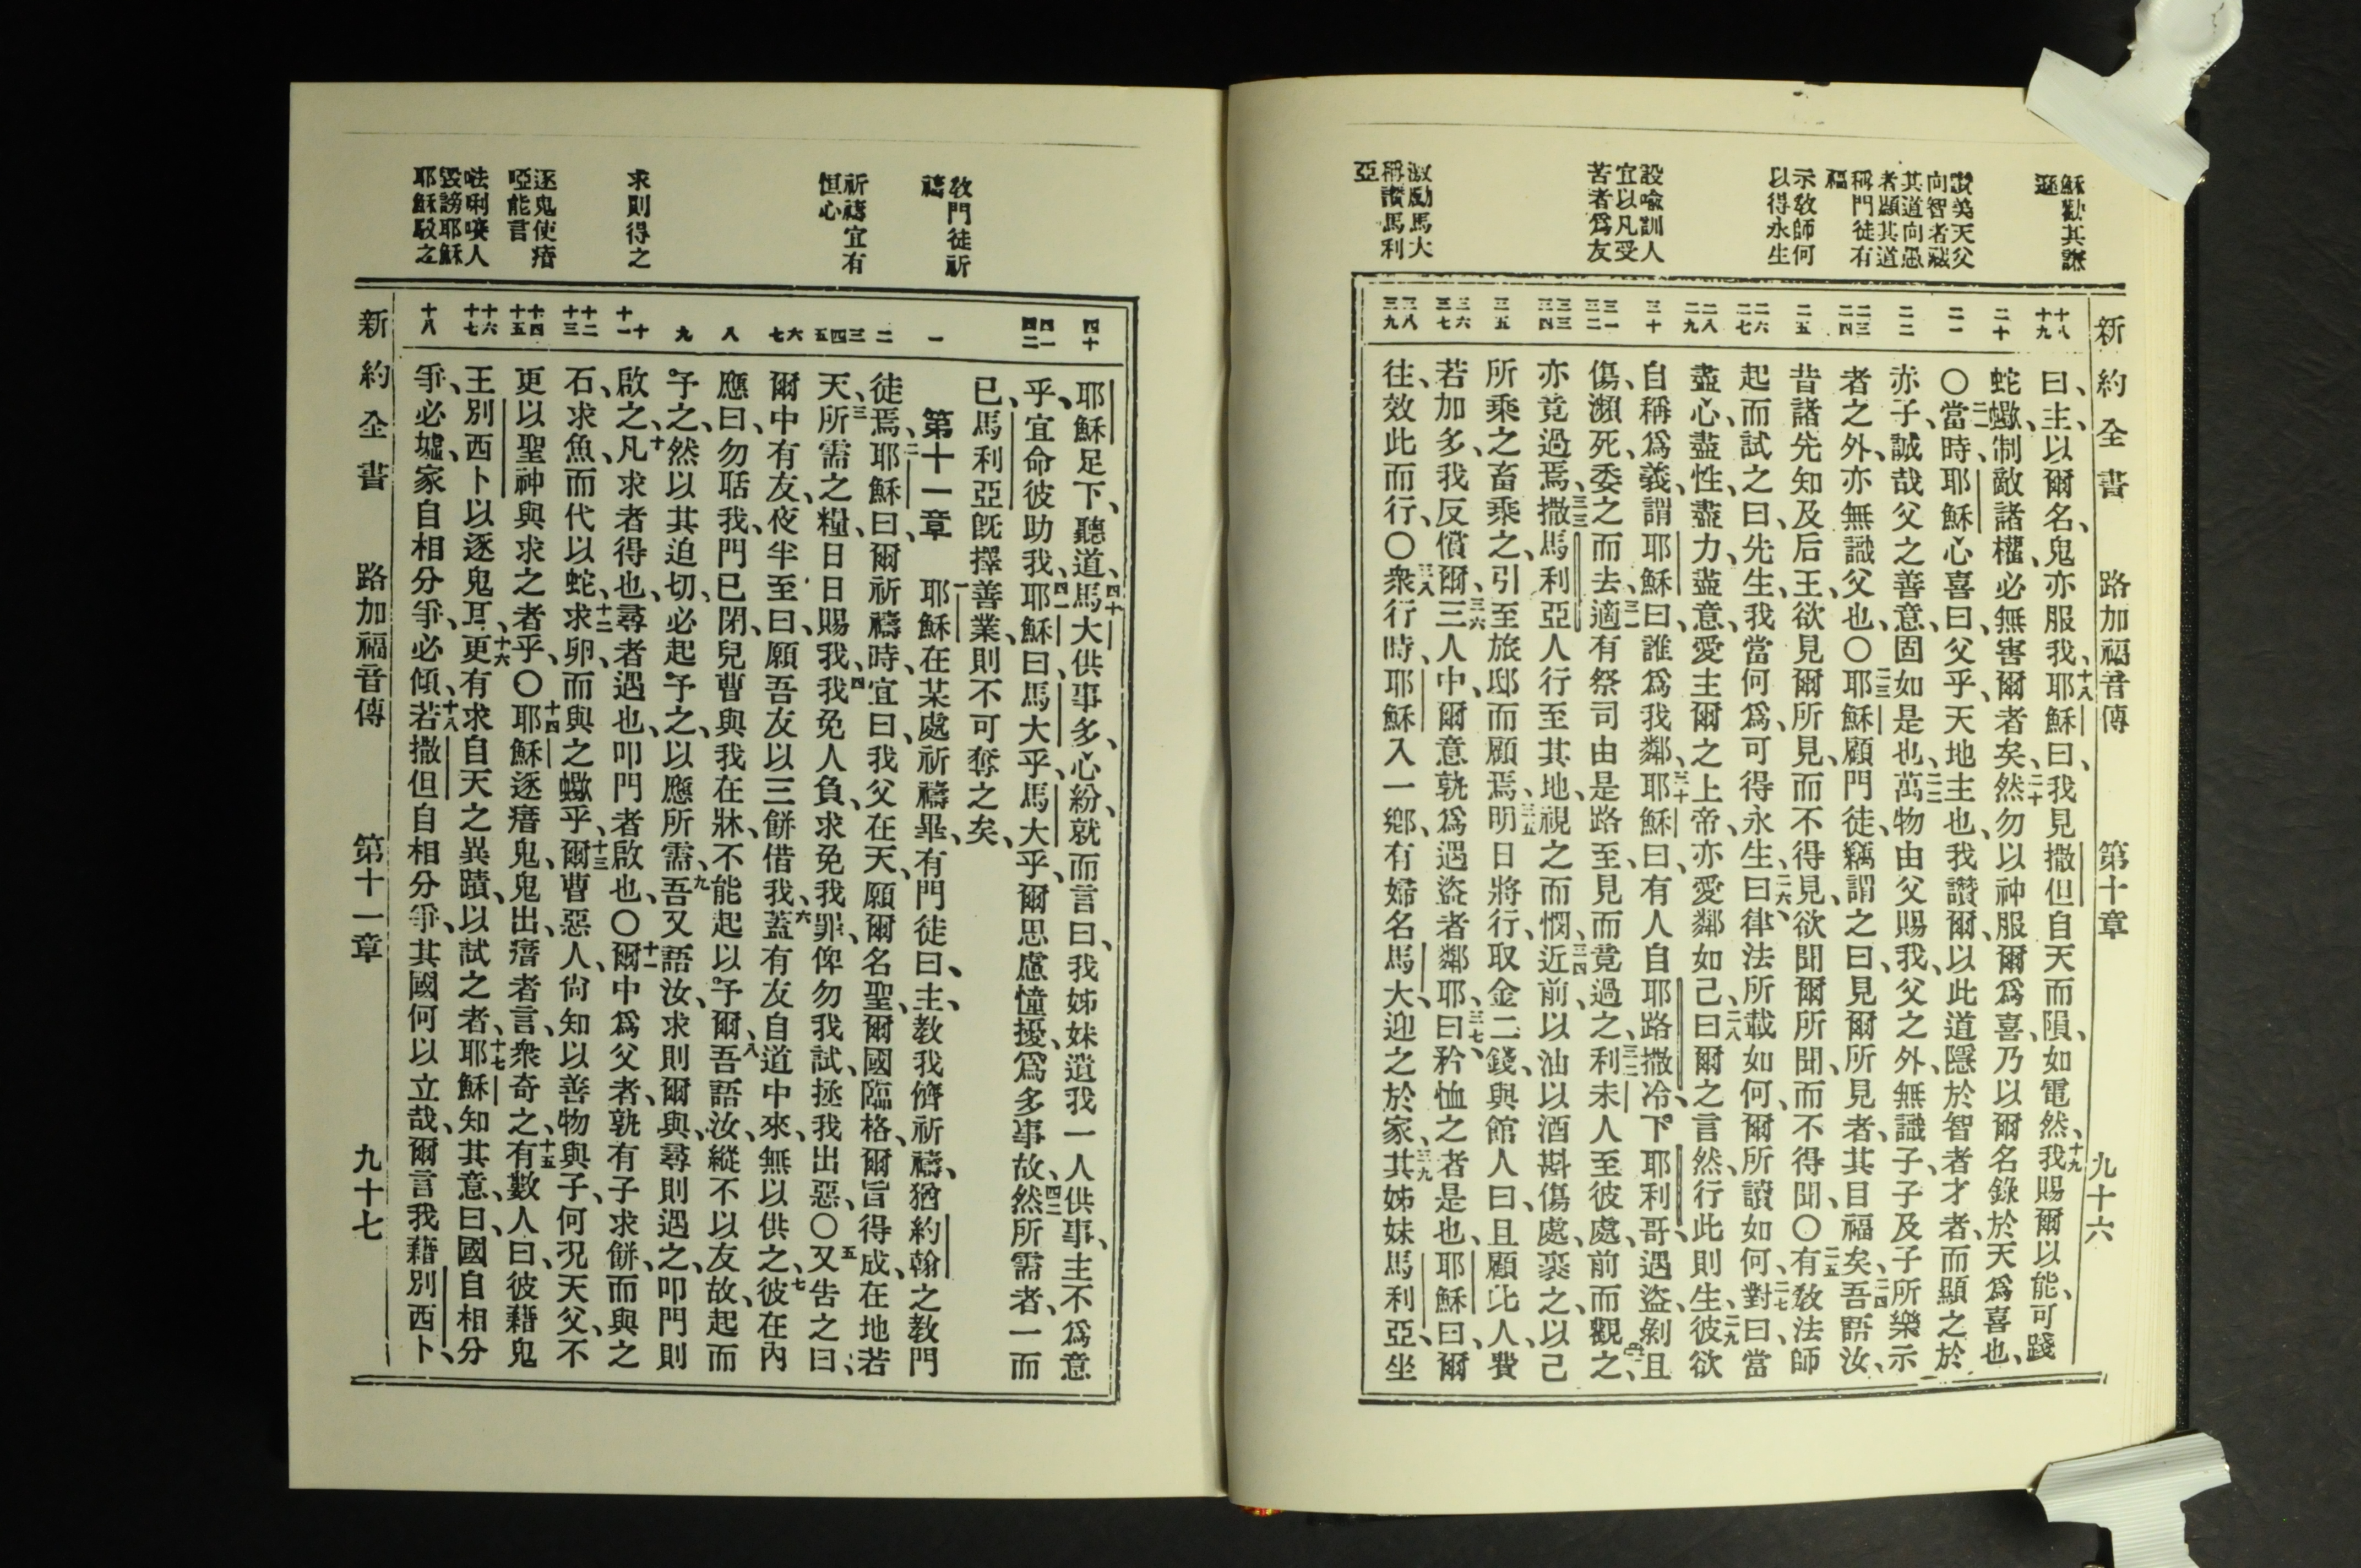 新約全書　路加福音傳　第十章　九十六
穌勸其謙
遜
讚美天父
向智者藏
其道向愚
者顯其道
稱門徒有
福
示教師何
以得永生
設喻訓人
宜以凡受
苦者爲友
激勵馬大
稱讚馬利
亞
十八
十九
二十
二一
二二
二三
二四
二五
二六
二七
二八
二九
三十
三一
三二
三三
三四
三五
三六
三七
三八
三九
曰、主、以爾名、鬼亦服我、十八耶穌曰、我見撒但自天而隕、如電然、十九我賜爾以能、可踐
蛇蠍、制敵諸權、必無害爾者矣、二十然勿以神服爾爲喜、乃以爾名錄於天爲喜也、
〇二一當時、耶穌心喜曰、父乎、天地主也、我讚爾、以此道隱於智者才者、而顯之於
赤子、誠哉父之善意、固如是也、二二萬物由父賜我、父之外、無識子、子及子所樂示
者之外、亦無識父也、〇二三耶穌顧門徒、竊謂之曰、見爾所見者、其目福矣、二四吾語汝、
昔諸先知及后王、欲見爾所見、而不得見、欲聞爾所聞、而不得聞、〇二五有教法師
起而試之曰、先生、我當何爲、可得永生、二六曰、律法所載如何、爾所讀如何、二七對曰、當
盡心、盡性、盡力、盡意、愛主爾之上帝、亦愛鄰如己、二八曰、爾之言然、行此則生、二九彼欲
自稱爲義、謂耶穌曰、誰爲我鄰、三十耶穌曰、有人自耶路撒冷下耶利哥、遇盜、剝且
傷、瀕死、委之而去、三一適有祭司由是路至、見而竟過之、三二利未人至彼處、前而觀之、
亦竟過焉、三三撒馬利亞人行至其地、視之而憫、三四近前、以油以酒斟傷處、裹之、以己
所乘之畜乘之、引至旅邸而顧焉、三五明日將行、取金二錢、與館人曰、且顧此人、費
若加多、我反償爾、三六三人中、爾意孰爲遇盜者鄰耶、三七曰、矜恤之者是也、耶穌曰、爾
往、效此而行、〇三八衆行時、耶穌入一鄉、有婦名馬大、迎之於家、三九其姊妹馬利亞、坐
教門徒祈
禱
祈禱宜有
恒心
求則得之
逐鬼使瘖
啞能言
𠵽唎㗨人
毀謗耶穌
耶穌駁之
四十
四一
四二
一
二
三
四
五
六
七
八
九
十
十一
十二
十三
十四
十五
十六
十七
十八
耶穌足下、聽道、四十馬大供事多、心紛、就而言曰、我姊妹遺我一人供事、主不爲意
乎、宜命彼助我、四一耶穌曰、馬大乎、馬大乎、爾思慮憧擾、爲多事故、四二然所需者、一而
已、馬利亞旣擇善業、則不可奪之矣、
第十一章　一耶穌在某處祈禱畢、有門徒曰、主、教我儕祈禱、猶約翰之教門
徒焉、二耶穌曰、爾祈禱時、宜曰、我父在天、願爾名聖、爾國臨格、爾旨得成、在地若
天、三所需之糧、日日賜我、四我免人負、求免我罪、俾勿我試、拯我出惡、〇五又告之曰、
爾中有友、夜半至曰、願吾友以三餅借我、六蓋有友自道中來、無以供之、七彼在內
應曰、勿聒我、門已閉、兒曹與我在牀、不能起以予爾、八吾語汝、縱不以友故、起而
予之、然以其迫切、必起予之、以應所需、九吾又語汝、求則爾與、尋則遇之、叩門則
啟之、十凡求者得也、尋者遇也、叩門者啟也、〇十一爾中爲父者、孰有子求餅、而與之
石、求魚、而代以蛇、十二求卵、而與之蠍乎、十三爾曹惡人、尙知以善物與子、何況天父、不
更以聖神與求之者乎、〇十四耶穌逐瘖鬼、鬼出、瘖者言、衆奇之、十五有數人曰、彼藉鬼
王別西卜以逐鬼耳、十六更有求自天之異蹟、以試之者、十七耶穌知其意、曰、國自相分
爭、必墟、家自相分爭、必傾、十八若撒但自相分爭、其國何以立哉、爾言我藉別西卜、
新約全書　路加福音傳　第十一章　九十七